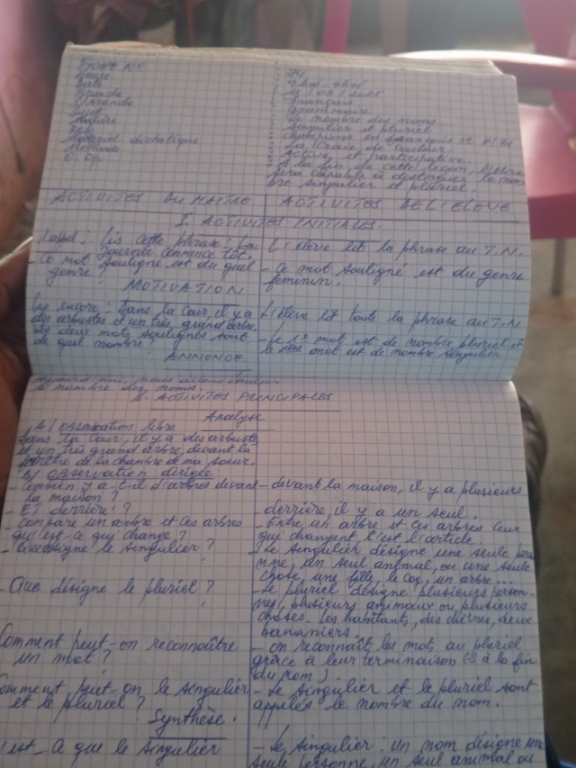 Fiche N°
Heure
Date
Branche
S/Branche
Sujet
Matière
Réf
Matériel didactique
Méthode
O. Op
Français
Grammaire
Le nombre des noms
singulier et pluriel
La Craie de couleur
Active et participative
A la fin de cette leçon, l'élève
sera capable de distinguer le nom
bre singulier et pluriel.
ACTIVITES DU MAITRE
ACTIVITES DE L'ELEVE
I. ACTIVITES INITIALES
Rappel : lis cette phrase : La
journée commence tôt.
- Ce mot souligné est du quel
genre ?
- L'élève lit la phrase au T.N.
- Ce mot souligné est du genre
féminin.
MOTIVATION
Lis encore : Dans la cour, il y a
des arbustes et un très grand arbre.
Les deux mots soulignés sont
de quel nombre ?
- L'élève lit toute la phrase au T.N
- Le 1er mot est de nombre pluriel et
le 2ème mot est de nombre singulier
ANNONCE
le nombre des noms.
II. ACTIVITES PRINCIPALES
Analyse
A/ Observation libre
Dans la cour, il y a des arbustes
et un très grand arbre devant la
fenêtre de la chambre de ma soeur.
B/ Observation dirigée
- Combien y a-t-il d'arbres devant
la maison ?
- Et derrière ?
- Compare un arbre et ces arbres
qu'est-ce qui change ?
- Que désigne le singulier ?
- Que désigne le pluriel ?
Comment peut-on reconnaître
un mot ?
Comment peut-on le singulier
et le pluriel ?
- devant la maison, il y a plusieurs
- derrière, il y a un seul.
- Entre un arbre et ces arbres ceux
qui changent c'est l'article.
- Le singulier désigne une seule perso
nne, un seul animal, ou une seule
chose, une fille, le coq, un arbre...
- Le pluriel désigne plusieurs person-
nes, plusieurs animaux ou plusieurs
choses. Les habitants, des chèvres, deux
bananiers
- on reconnaît les mots au pluriel
grâce à leur terminaison (S à la fin
du nom)
- Le singulier et le pluriel sont
appelés le nombre du nom.
Synthèse.
C'est-ce que le singulier
- Le singulier : un nom désigne une
seule personne, un seul animal ou